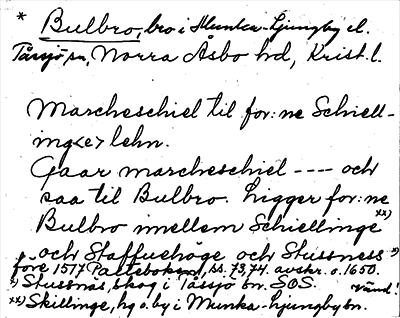 * Bulbro, bro i Munka-Ljungby el.
Tåssjö sn, Norra Åsbo hd, Krist. l.
Marcheschiel til for:ne Schiell-
ing<e> lehn.
Gaar marcheschiel ---- och
saa til Bulbro. Ligger for:ne
Bulbro imellem Schiellinge xx)
och Staffuehöge och Stussness x)
före 1517 Palteboken, ss. 73, 74. avskr. o. 1650.
x) Stussnäs, skog i Tåssjö sn. SOS. vänd!
xx) Skillinge, hg o. by i Munka-Ljungby sn.